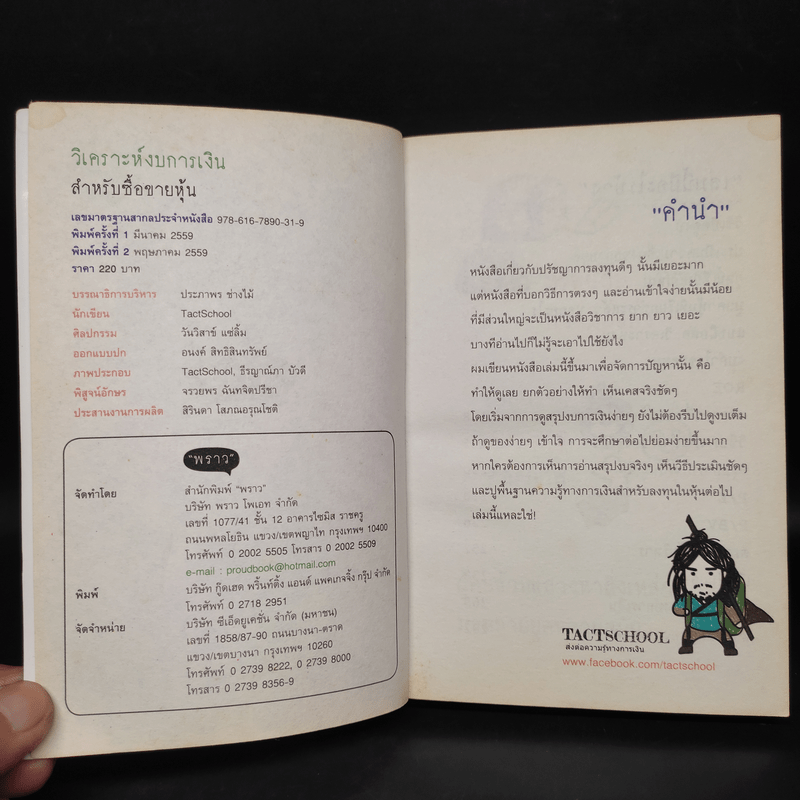 วิเคราะห์งบการเงิน
สำหรับซื้อขายหุ้น
เลขมาตรฐานสากลประจำหนังสือ 978-616-7890-31-9
พิมพ์ครั้งที่ 1 มีนาคม 2559
พิมพ์ครั้งที่ 2 พฤษภาคม 2559
ราคา 220 บาท
บรรณาธิการบริหาร ประภาพร ช่างไม้
นักเขียน TactSchool
ศิลปกรรม วันวิสาข์ แซ่ลิ้ม
ออกแบบปก อนงค์ สิทธิสินทรัพย์
ภาพประกอบ TactSchool, ธีรญาณ์ภา บัวดี
พิสูจน์อักษร จรวยพร ฉันทจิตปรีชา
ประสานงานการผลิต สิรินดา โสภณอรุณโชติ
"พราว"
จัดทำโดย สำนักพิมพ์ "พราว"
บริษัท พราว โพเอท จำกัด
เลขที่ 1077/41 ชั้น 12 อาคารไซมิส ราชครู
ถนนพหลโยธิน แขวง/เขตพญาไท กรุงเทพฯ 10400
โทรศัพท์ 0 2002 5505 โทรสาร 0 2002 5509
e-mail : proudbook@hotmail.com
พิมพ์ บริษัท กู๊ดเฮด พริ้นท์ติ้ง แอนด์ แพคเกจจิ้ง กรุ๊ป จำกัด
โทรศัพท์ 0 2718 2951
จัดจำหน่าย บริษัท ซีเอ็ดยูเคชั่น จำกัด (มหาชน)
เลขที่ 1858/87-90 ถนนบางนา-ตราด
แขวง/เขตบางนา กรุงเทพฯ 10260
โทรศัพท์ 0 2739 8222, 0 2739 8000
โทรสาร 0 2739 8356-9
"คำนำ"
หนังสือเกี่ยวกับปรัชญาการลงทุนดีๆ นั้นมีเยอะมาก
แต่หนังสือที่บอกวิธีการตรงๆ และอ่านเข้าใจง่ายนั้นมีน้อย
ที่มีส่วนใหญ่จะเป็นหนังสือวิชาการ ยาก ยาว เยอะ
บางทีอ่านไปก็ไม่รู้จะเอาไปใช้ยังไง
ผมเขียนหนังสือเล่มนี้ขึ้นมาเพื่อจัดการปัญหานั้น คือ
ทำให้ดูเลย ยกตัวอย่างให้ทำ เห็นเคสจริงชัดๆ
โดยเริ่มจากการดูสรุปงบการเงินง่ายๆ ยังไม่ต้องรีบไปดูงบเต็ม
ถ้าดูของง่ายๆ เข้าใจ การจะศึกษาต่อไปย่อมง่ายขึ้นมาก
หากใครต้องการเห็นการอ่านสรุปงบจริงๆ เห็นวิธีประเมินชัดๆ
และปูพื้นฐานความรู้ทางการเงินสำหรับลงทุนในหุ้นต่อไป
เล่มนี้แหละใช่!
TACTSCHOOL
ส่งต่อความรู้ทางการเงิน
www.facebook.com/tactschool